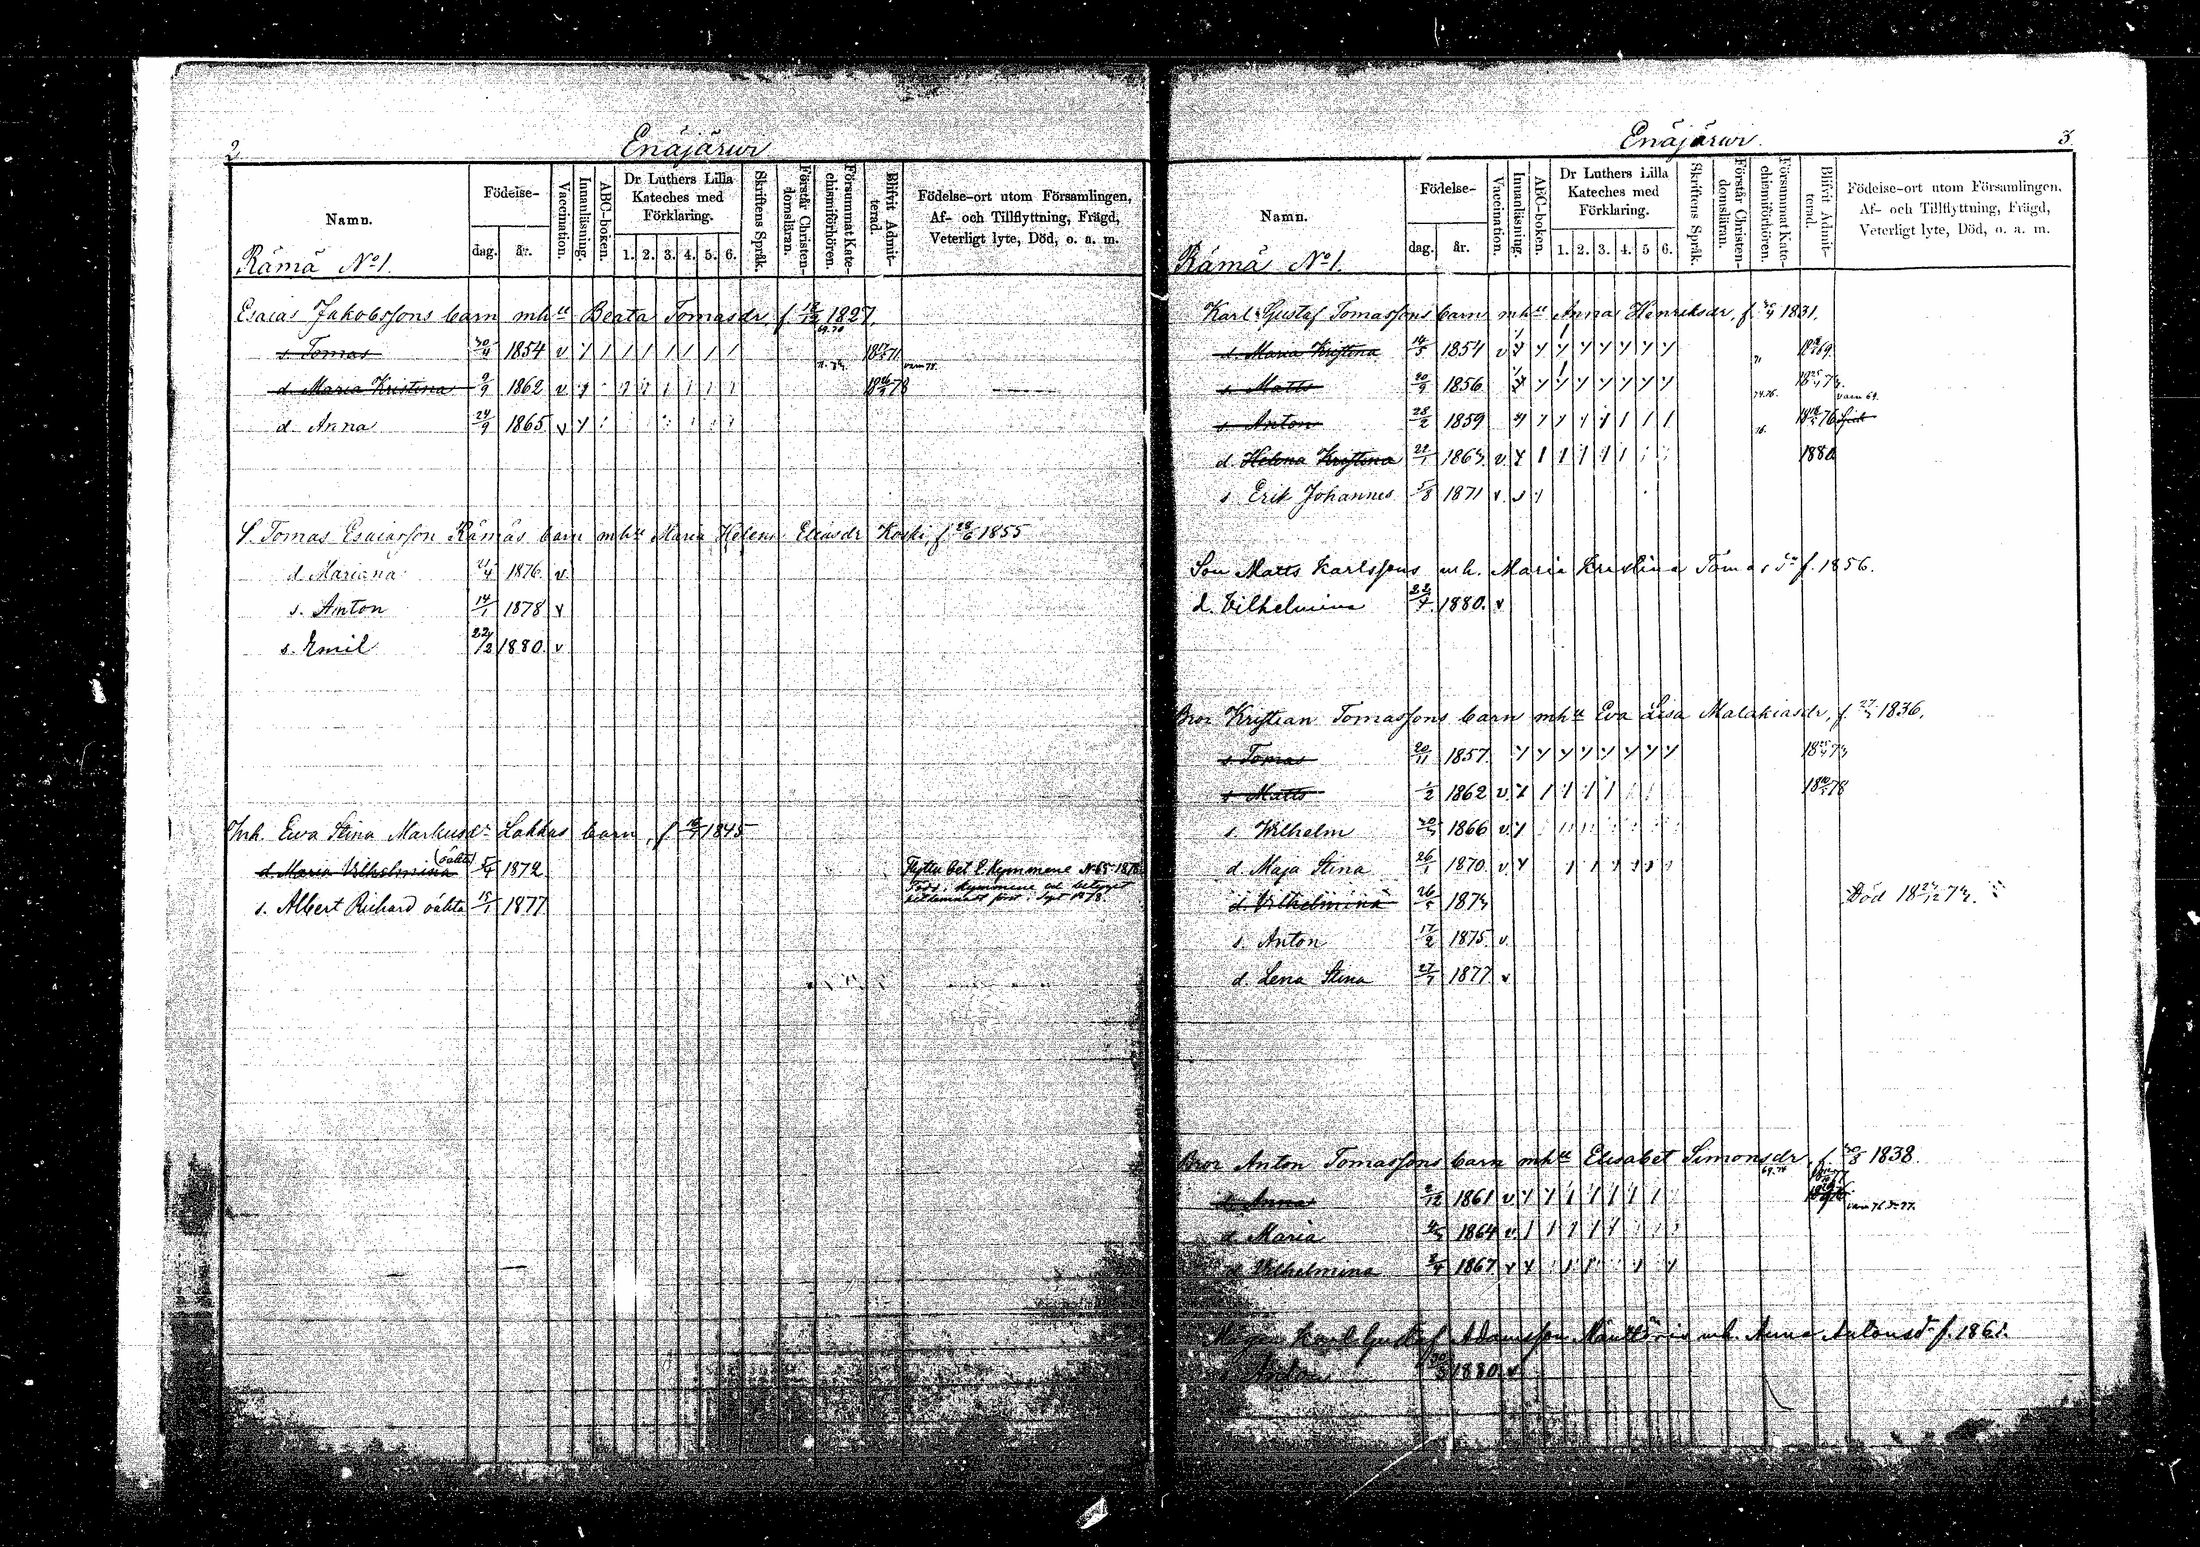 2
Enäjärwi
Namn.
Födelse-
dag.
år.
Vaccination.
Innanläsning.
ABC-boken.
Dr Luthers Lilla Kateches med Förklaring.
1. 2. 3. 4. 5. 6.
Skriftens Språk.
Förstår Christen-domsläran.
Försummat Kate-chismiförhören.
Blifvit Admit-terad.
Födelse-ort utom Församlingen,
Af- och Tillflyttning, Frägd,
Veterligt lyte, Död, o. a. m.
Rämä No 1.
Esaias Jakobssons barn mh Beata Tomasdr, f. 18/12 1827.
69.70
s. Tomas 30/4 1854 v
d. Maria Kristina 9/9 1862 v 78
d. Anna 24/9 1865 v
S. Tomas Esaiasson Rämäs barn mh Maria Helena Eliasdr Koski, f. 28/6 1855
d. Mariana 1876 v
s. Anton 14/1 1878 v
s. Emil 22/2 1880 v
Inh. Ewa Stina Markusdr Lakkas barn, f 1845
d. Maria Vilhelmina (oäkta) 5/4 1872
s. Albert Richard oäkta 15/1 1877
Enäjärwi.
3.
Namn.
Födelse-
dag.
år.
Vaccination.
Innanläsning.
ABC-boken.
Dr Luthers Lilla Kateches med Förklaring.
1. 2. 3. 4. 5 6.
Skriftens Språk.
Förstår Christen-domsläran.
Försummat Kate-chismiförhören.
Blifvit Admit-terad.
Födelse-ort utom Församlingen,
Af- och Tillflyttning, Frägd,
Veterligt lyte, Död, o. a. m.
Rämä No 1.
Karl Gustaf Tomassons barn mh Anna Henriksdr, f. 1831.
d. Maria Kristina 14/5 1854 v 69
s. Matts 20/9 1856
s. Anton 28/2 1859 76
d. Helena Kristina 1863 v 1880
s. Erik Johannes 5/8 1871 v
Son Matts Karlssons mh. Maria Kristina Tomasdr f. 1856.
d. Vilhelmina 1880. v
Bror Kristian Tomassons barn mh Eva Lisa Malakiasdr, f. 1836.
s. Tomas 20/11 1857.
s. Matts 1/2 1862 v 78
s. Vilhelm 1866 v
d. Maja Stina 26/1 1870. v
d. Vilhelmina 26/5 1873 Död
s. Anton 17/2 1875. v
d. Lena Stina 1877 v
Bror Anton Tomassons barn mh Elisabet Simonsdr, f. 1838.
69.74
d. Anna 2/12 1861 v
d. Maria 1864 v
d. Vilhelmina 1867 v
Karl Gustaf Adamsson mh. Anna Antonsdr f. 1861.
s. Anton 1880. v